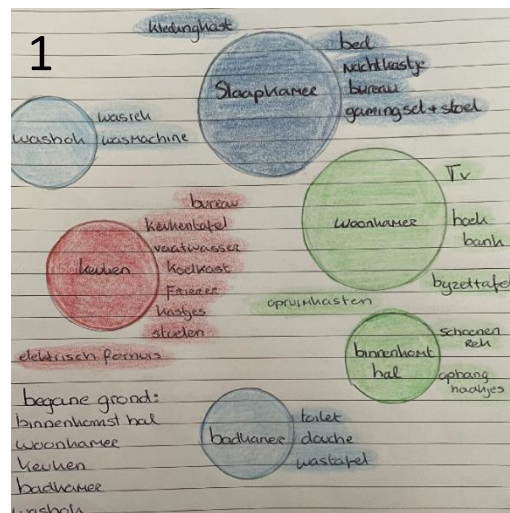 1
kledingkast
Slaapkamer
bed
Nachtkastje
bureau
gamingset + stoel
washok
wasrek
wasmachine
woonkamer
Tv
hoek
bank
byzettafel
opruimkasten
keuken
bureau
keukentafel
vaatwasser
koelkast
Friezer
kastjes
stoelen
elektrisch fornuis
binnenkomst
hal
schoenen
rek
ophang
haakjes
badkamer
toilet
douche
wastafel
begane grond:
binnenkomst hal
woonkamer
keuken
badkamer
washok